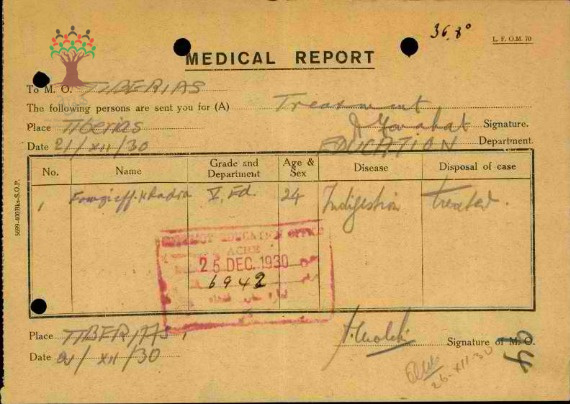 36.8°
L. F. O.M. 70
MEDICAL REPORT
To M. O. TIBERIAS
The following persons are sent you for (A) Treatment
Place Tiberias Signature.
Date 21/XII/30 EDUCATION Department
No. Name Grade and Department Age & Sex Disease Disposal of case
1 Fawzi eff. Khadra V, Ed. 24 Indigestion treated.
EDUCATION OFFICE
ACRE
25 DEC. 1930
6942
Place TIBERIAS
Date 21/XII/30 Signature of M. O.
26-XII-30
94